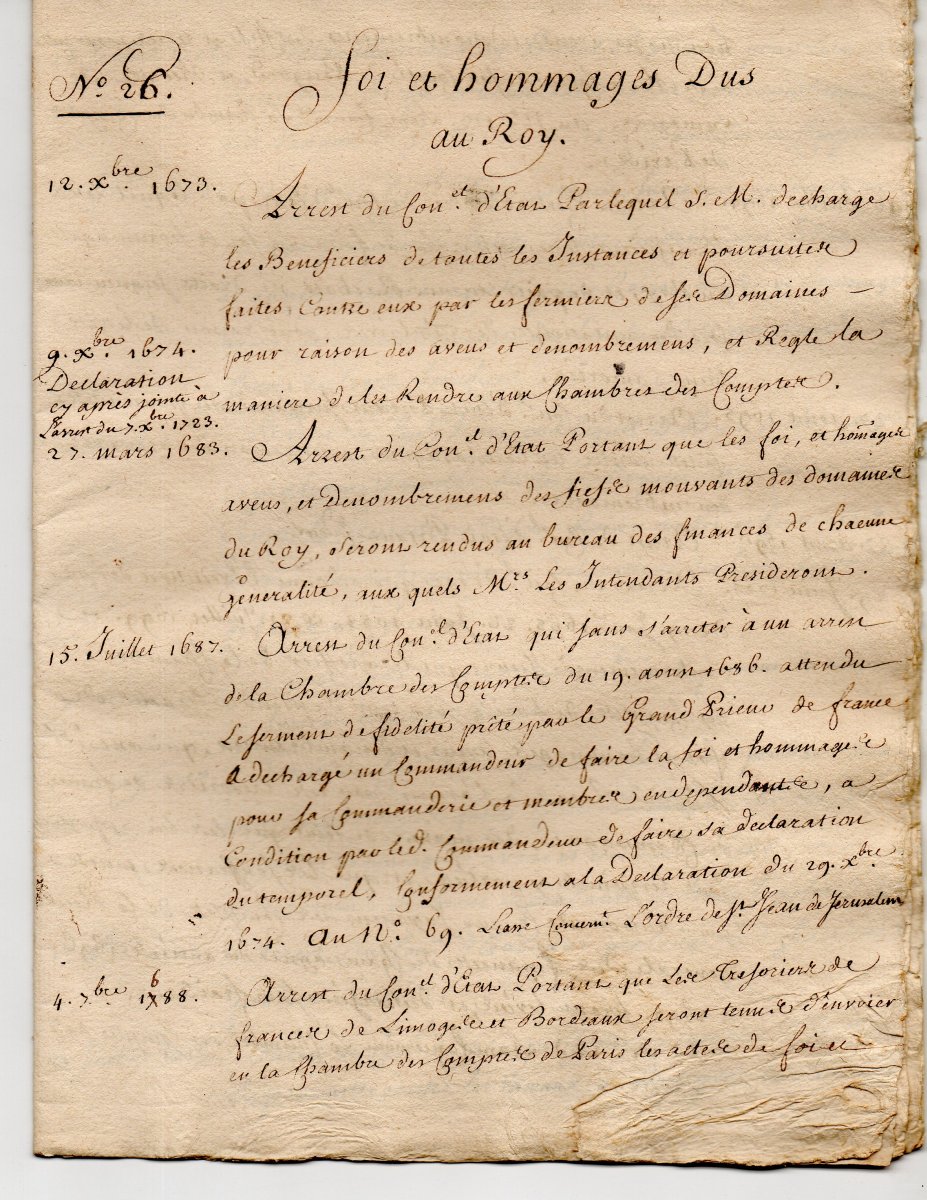 N.º 26.
Foi et hommages Dus
au Roy.
12. xbre. 1673.
Arrest du Con.el d'Etat Parlequel S. M. decharge
les Beneficiers de toutes les Instances et poursuites
faites Contre eux par les fermiers de ses Domaines –
pour raison des aveus et denombremens, et Regle la
maniere de les Rendre aux Chambres des Comptes.
9. xbre. 1674.
Declaration
cy après jointe à
L'arrest du 7. xbre. 1723.
27. mars 1683.
Arrest du Con.el d'Etat Portant que les foi, et hom̃ages
aveus, et Denombremens des fiefs mouvants des domaines
du Roy, seront rendus au bureau des finances de chacune
généralité, aux quels M.rs Les Intendants Presideront.
15. Juillet 1687.
Arrest du Con.el d'Etat qui sans s'arreter à un arrest
de la Chambre des Comptes du 19. aoust 1686. attendu
Le serment de fidelité prêté par le Grand Prieur de france
A dechargé un Commandeur de faire la foi et hommages
pour sa Commanderie et membres en dependants, a
Condition par led. Commandeur de faire sa declaration
du temporel, Conformement a la Declaration du 29. xbre.
1674. Au N.º 69. Liasse Concern.t L'ordre de S.t Jean de Jerusalem
4. 7bre 1688.
Arrest du Con.el d'Etat Portant que Les Tresoriers de
frances de Limoges et Bordeaux seront tenus d'envoier
en la Chambre des Comptes de Paris les actes de foi et